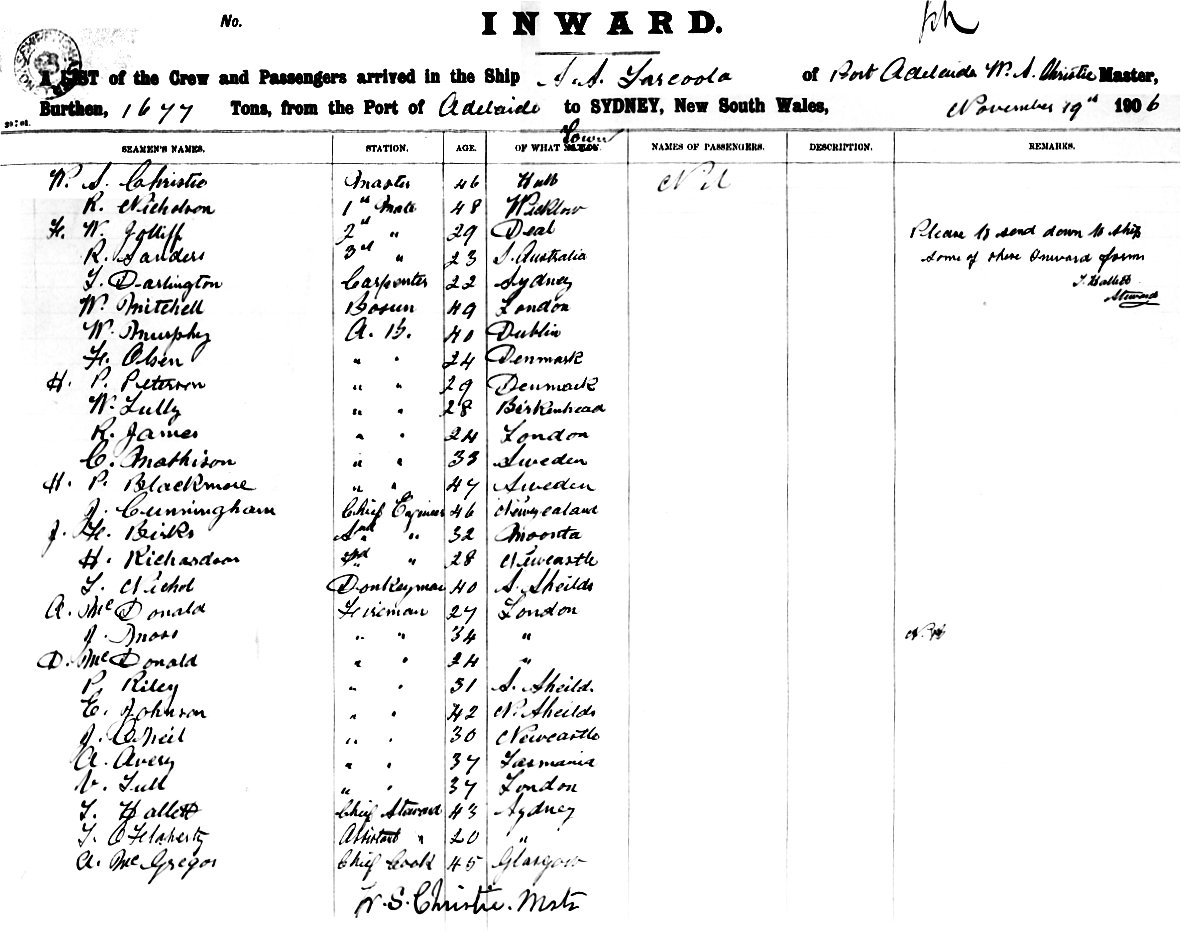 No.
INWARD.
A LIST of the Crew and Passengers arrived in the Ship S. S. Tarcoola of Port Adelaide W. S. Christie Master,
Burthen, 1677 Tons, from the Port of Adelaide to SYDNEY, New South Wales, November 19th 1906
SEAMEN'S NAMES. STATION. AGE. OF WHAT Town NAMES OF PASSENGERS. DESCRIPTION. REMARKS.
W. S. Christie Master 46 Hull Nil
R. Nicholson 1st Mate 48 Wicklow
F. W. Jolliff 2nd " 29 Deal Please to send down to ship
R. Sanders 3rd " 23 S. Australia some of these Inward forms
T. Darlington Carpenter 22 Sydney T. Hallett
W. Mitchell Bosun 49 London Steward
W. Murphy A. B. 40 Dublin
F. Olsen " " 24 Denmark
H. P. Peterson " " 29 Denmark
W. Tully " " 28 Birkenhead
R. James " " 24 London
C. Mathison " " 33 Sweden
H. P. Blackmore " " 47 Sweden
J. Cunningham Chief Engineer 46 Newzealand
J. H. Birks 2nd " 32 Moonta
H. Richardson 3rd " 28 Newcastle
T. Nichol Donkeyman 40 S. Sheilds
A. McDonald Fireman 27 London
J. Moss " " 34 "
D. McDonald " " 24 "
P. Riley " " 31 S. Sheild.
E. Johnson " " 42 N. Sheilds
J. O'Neil " " 30 Newcastle
A. Avery " " 37 Tasmania
V. Tull " " 37 London
T. Hallett Chief Steward 43 Sydney
T. O'Flaherty Assistant " 20 "
A. McGregor Chief Cook 45 Glasgow
W. S. Christie. Mstr